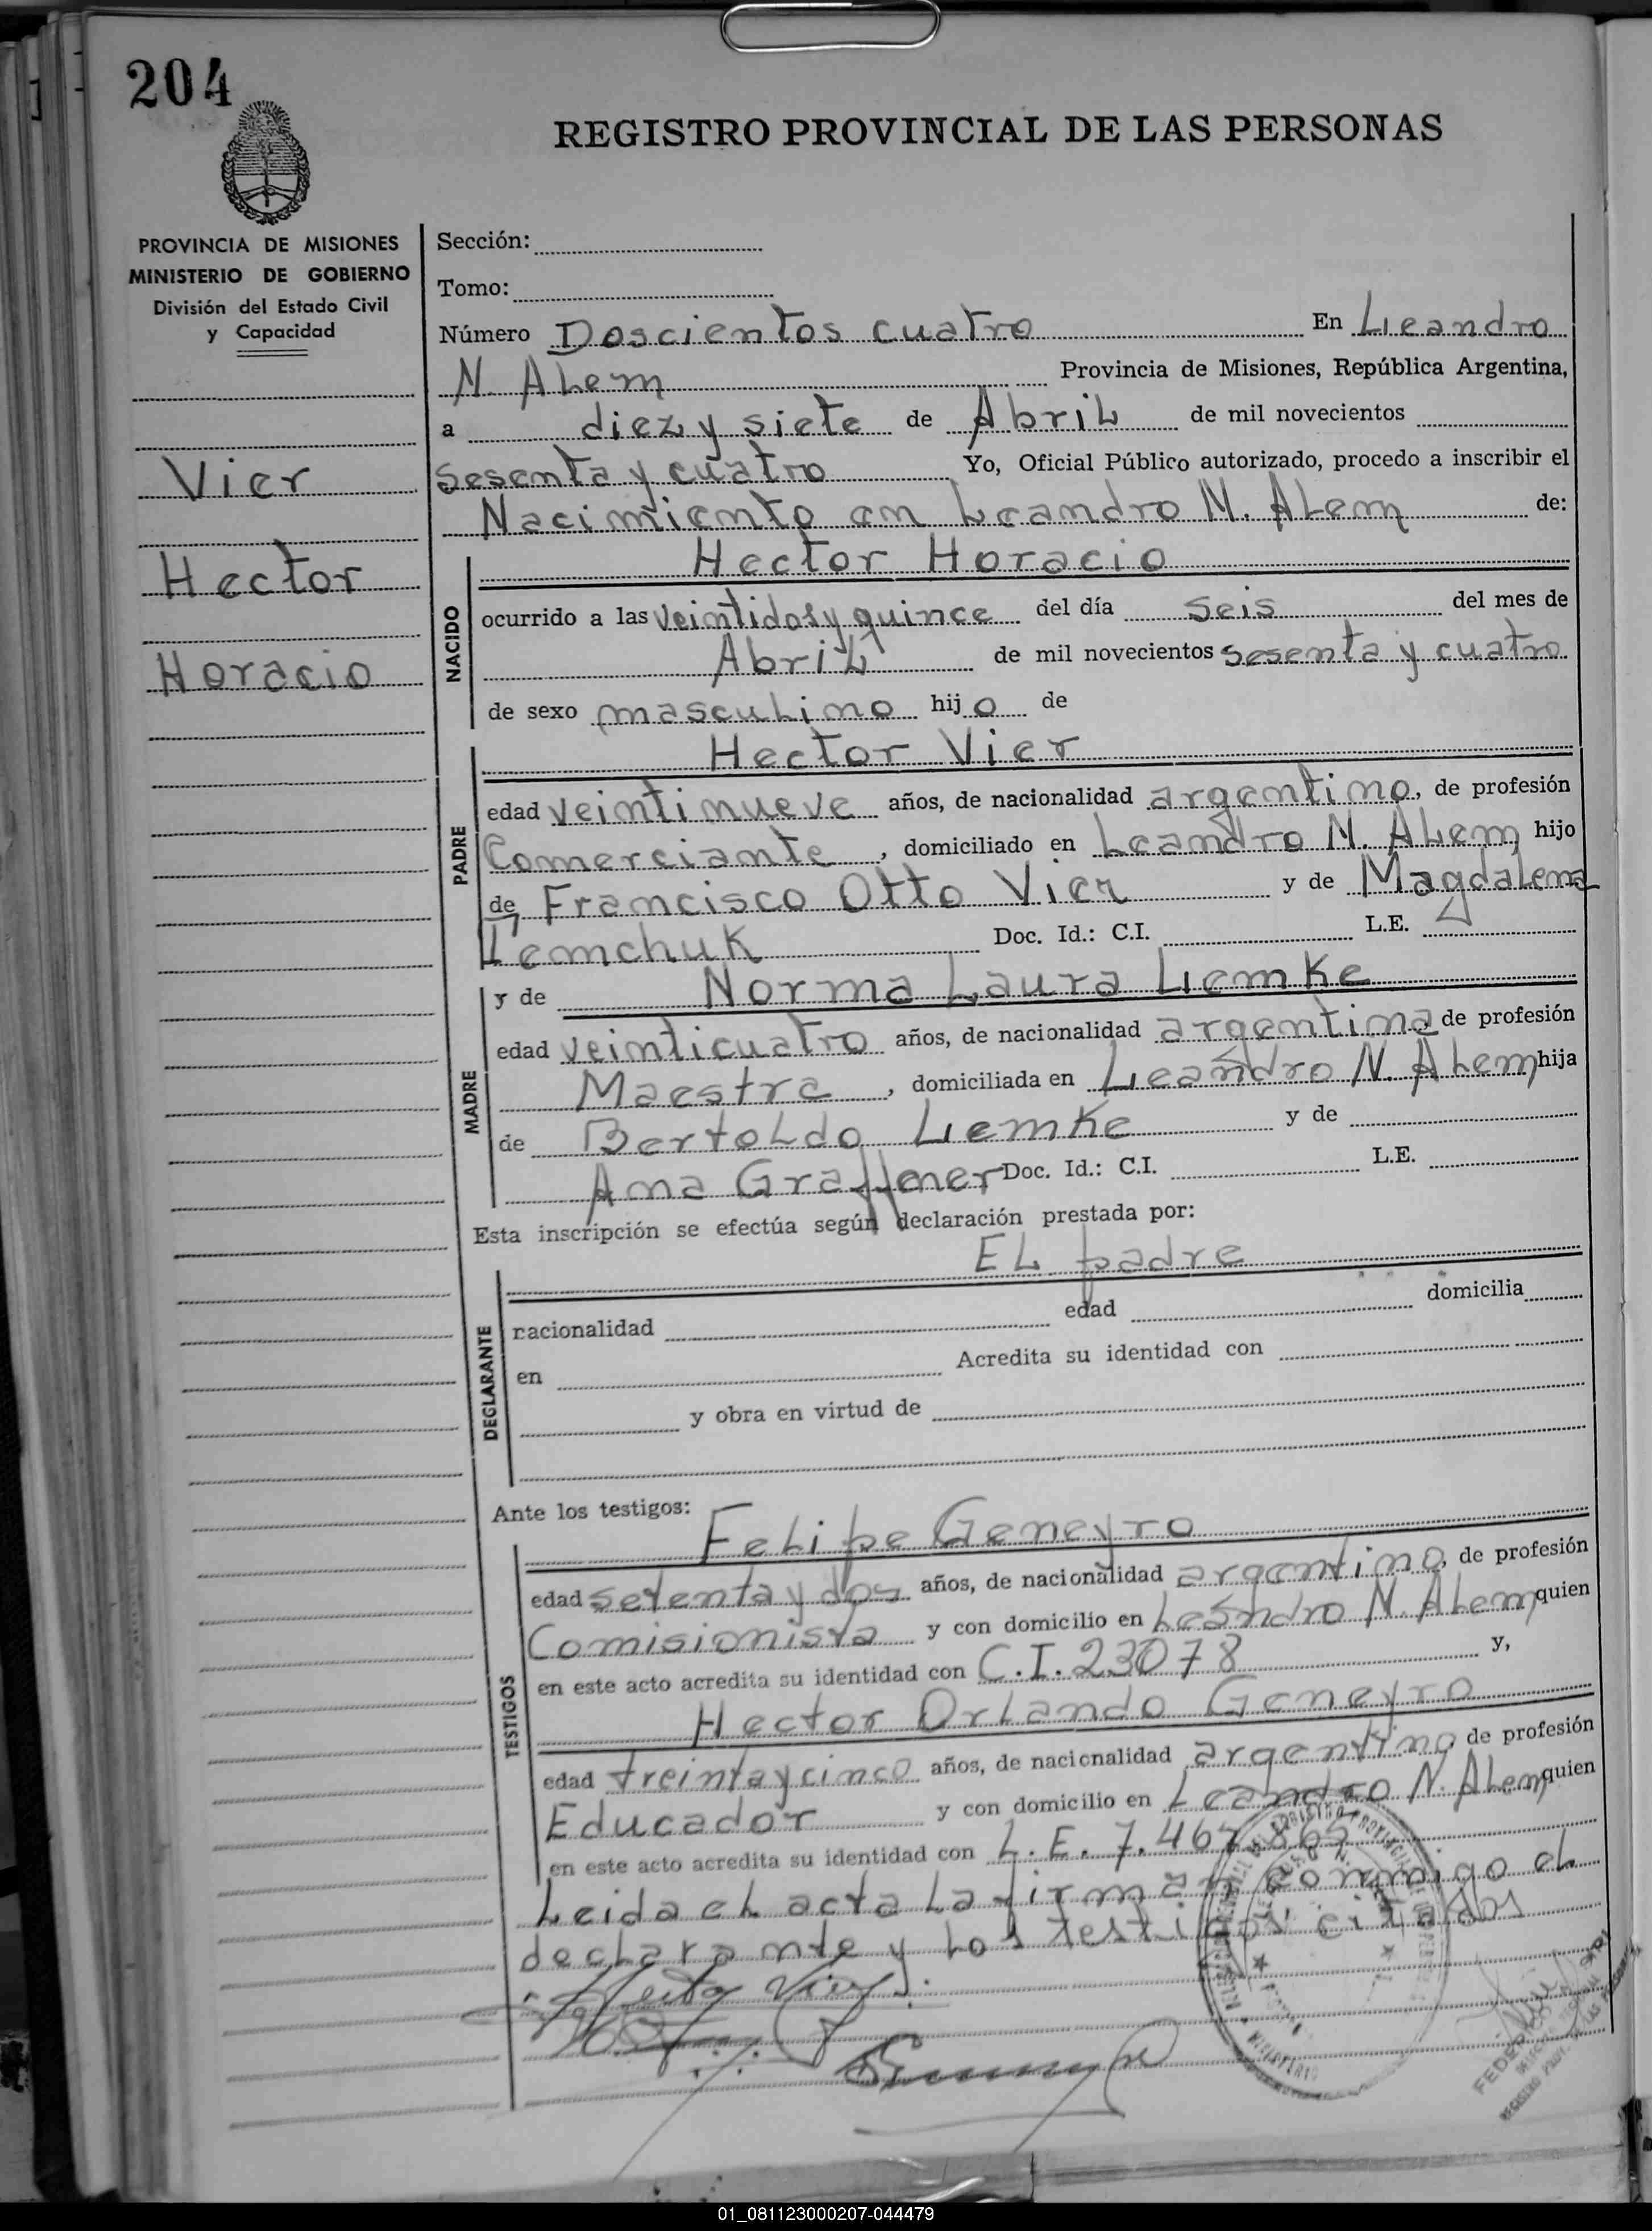 204
REGISTRO PROVINCIAL DE LAS PERSONAS
PROVINCIA DE MISIONES
MINISTERIO DE GOBIERNO
División del Estado Civil
y Capacidad
Vier
Hector
Horacio
Sección:
Tomo:
Número Doscientos cuatro En Leandro
N. Alem Provincia de Misiones, República Argentina,
a diez y siete de Abril de mil novecientos
sesenta y cuatro Yo, Oficial Público autorizado, procedo a inscribir el
Nacimiento en Leandro N. Alem de:
NACIDO
Hector Horacio
ocurrido a las veintidos y quince del día seis del mes de
Abril de mil novecientos sesenta y cuatro
de sexo masculino hijo de
PADRE
Hector Vier
edad veintinueve años, de nacionalidad argentino, de profesión
Comerciante, domiciliado en Leandro N. Alem hijo
de Francisco Otto Vier y de Magdalena
Lemchuk Doc. Id.: C.I. L.E.
MADRE
y de Norma Laura Liemke
edad veinticuatro años, de nacionalidad argentina de profesión
Maestra, domiciliada en Leandro N. Alem hija
de Bertoldo Liemke y de
Ana Graffner Doc. Id.: C.I. L.E.
Esta inscripción se efectúa según declaración prestada por:
DECLARANTE
El padre
nacionalidad edad domicilia
en Acredita su identidad con
y obra en virtud de
Ante los testigos:
TESTIGOS
Felipe Geneyro
edad setenta y dos años, de nacionalidad argentino, de profesión
Comisionista y con domicilio en Leandro N. Alem quien
en este acto acredita su identidad con C.I. 23078 y,
Hector Orlando Geneyro
edad treinta y cinco años, de nacionalidad argentino de profesión
Educador y con domicilio en Leandro N. Alem quien
en este acto acredita su identidad con L.E. 7.467.
Leida el acta la firman conmigo el
declarante y los testigos citados
Hector Vier
01_081123000207-044479